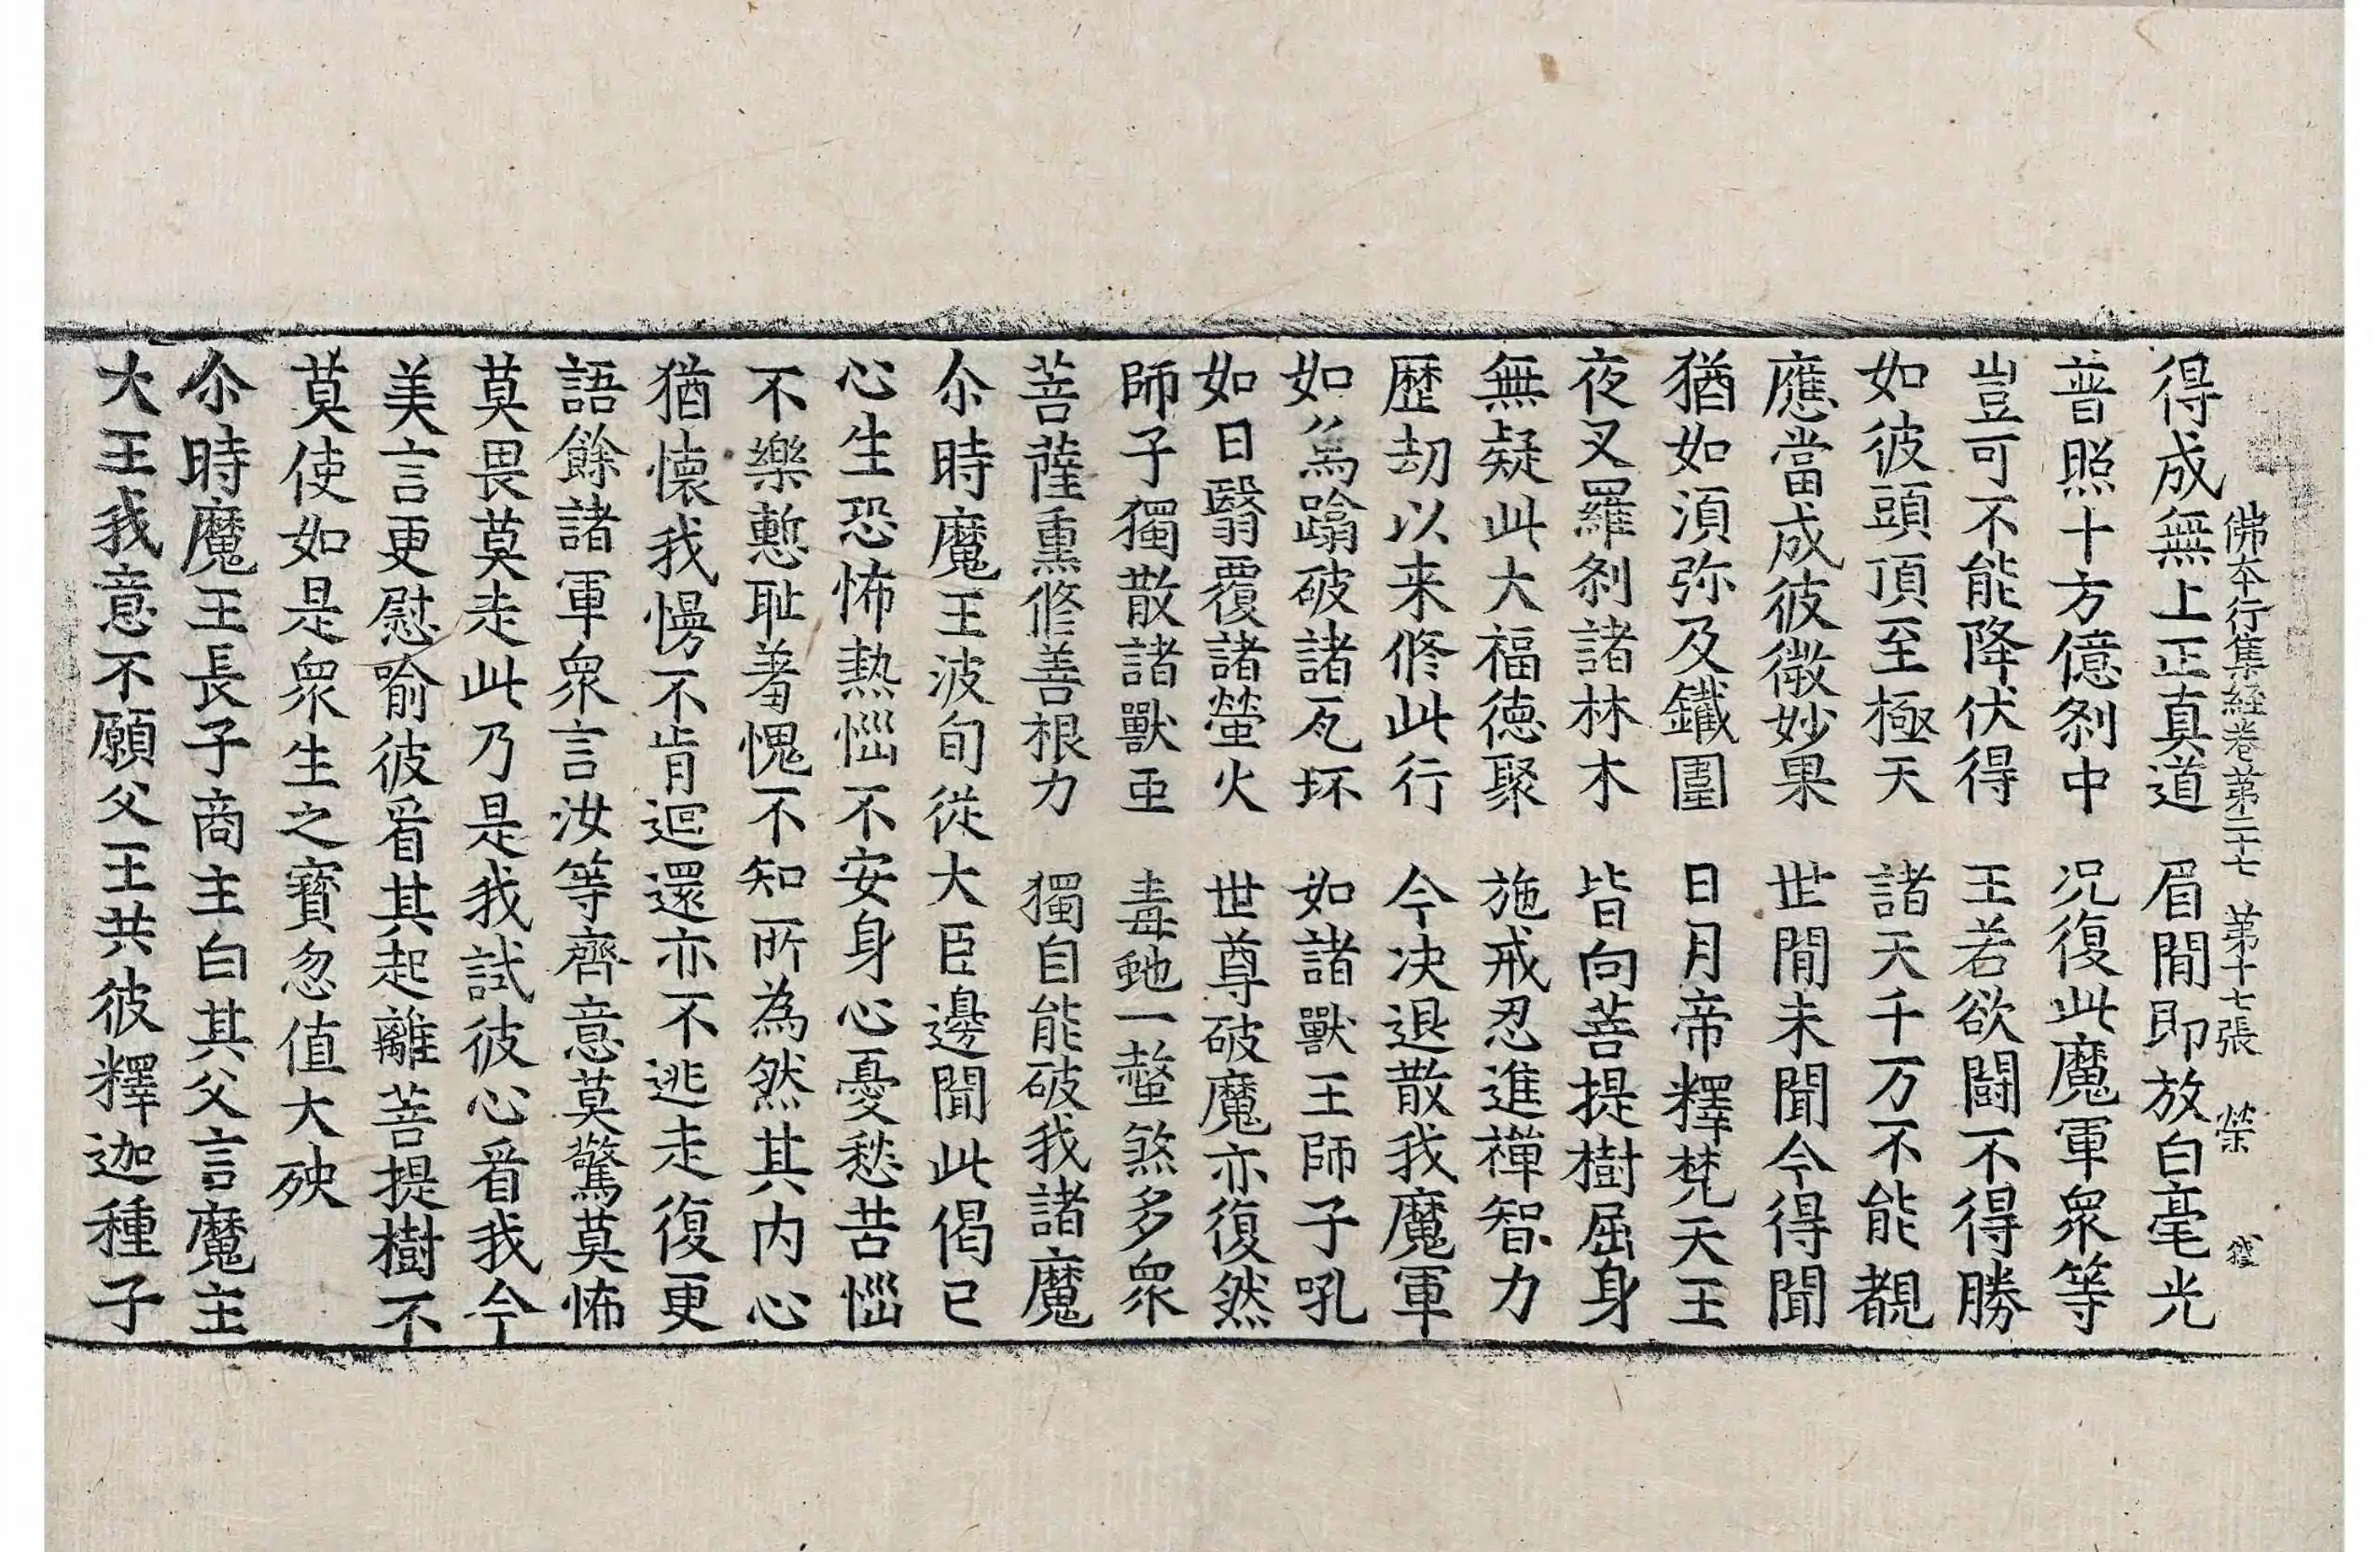 佛本行集経卷第二十七 第十七張 榮
得成無上正真道 眉間即放白毫光
普照十方億刹中 况復此魔軍衆等
豈可不能降伏得 王若欲鬪不得勝
如彼頭頂至極天 諸天千万不能覩
應當成彼微妙果 世間未聞今得聞
猶如湏弥及鐵圍 日月帝釋梵天王
夜叉羅刹諸林木 皆向菩提樹屈身
無疑此大福徳聚 施戒忍進禪智力
歷劫以来修此行 今决退散我魔軍
如為蹹破諸瓦坏 如諸獸王師子吼
如日翳覆諸螢火 世尊破魔亦復然
師子獨散諸獸亜 毒虵一螫煞多衆
菩薩熏修善根力 獨自能破我諸魔
尒時魔王波旬從大臣邊聞此偈已
心生恐怖熱惱不安身心憂愁苦惱
不樂慙耻羞愧不知所為然其内心
猶懐我慢不肯迴還亦不逃走復更
語餘諸軍衆言汝等齊意莫驚莫怖
莫畏莫走此乃是我試彼心看我今
美言更慰喻彼看其起離菩提樹不
莫使如是衆生之寶忽值大殃
尒時魔王長子商主白其父言魔主
大王我意不願父王共彼釋迦種子